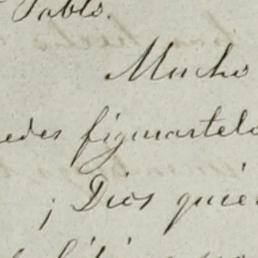 Pablo.
Mucho
edes figurartelo
¡ Dios quie